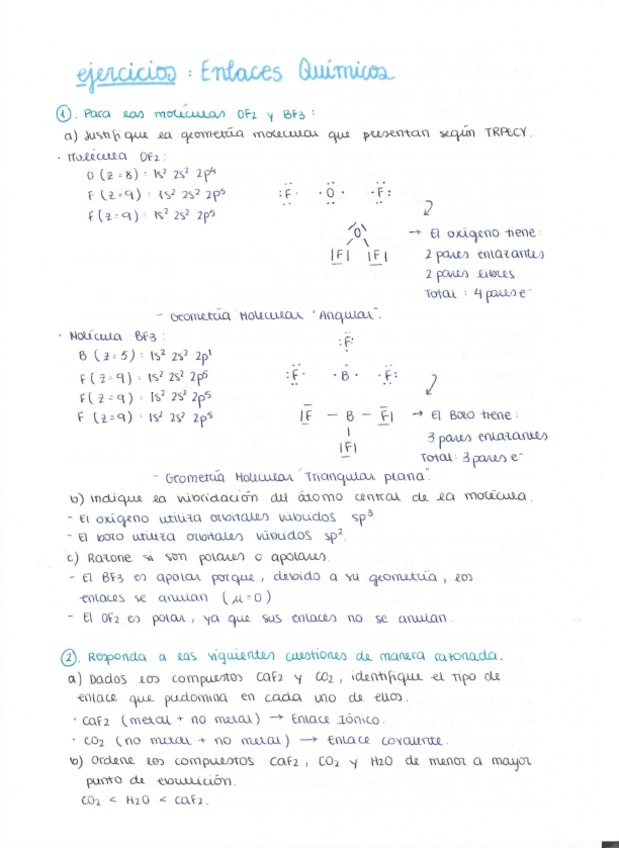 ejercicios : Enlaces Químicos
①. Para las moléculas OF2 y BF3 :
a) Justifique la geometría molecular que presentan según TRPECV.
· Molécula OF2 :
O (z=8) : 1s² 2s² 2p⁴
F (z=9) : 1s² 2s² 2p⁵
F (z=9) : 1s² 2s² 2p⁵
:F· ·O· ·F:
O
|F| |F|
→ El oxígeno tiene:
2 pares enlazantes
2 pares libres
Total : 4 pares e⁻
- Geometría Molecular "Angular".
· Molécula BF3 :
B (z=5) : 1s² 2s² 2p¹
F (z=9) : 1s² 2s² 2p⁵
F (z=9) : 1s² 2s² 2p⁵
F (z=9) : 1s² 2s² 2p⁵
:F:
:F· ·B· ·F:
|F — B — F|
|
|F|
→ El Boro tiene:
3 pares enlazantes
Total: 3 pares e⁻
- Geometría Molecular "Triangular plana".
b) Indique la hibridación del átomo central de la molécula.
- El oxígeno utiliza orbitales híbridos sp³.
- El boro utiliza orbitales híbridos sp².
c) Razone si son polares o apolares.
- El BF3 es apolar porque, debido a su geometría, los
enlaces se anulan (μ=0)
- El OF2 es polar, ya que sus enlaces no se anulan.
②. Responda a las siguientes cuestiones de manera razonada.
a) Dados los compuestos CaF2 y CO2, identifique el tipo de
enlace que predomina en cada uno de ellos.
· CaF2 (metal + no metal) → Enlace Iónico.
· CO2 (no metal + no metal) → Enlace covalente.
b) Ordene los compuestos CaF2, CO2 y H2O de menor a mayor
punto de ebullición.
CO2 < H2O < CaF2.